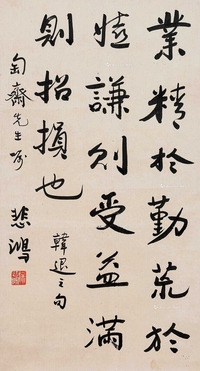 業精於勤荒於
嬉謙則受益滿
則招損也
韓退之句
匋齋先生
悲鴻